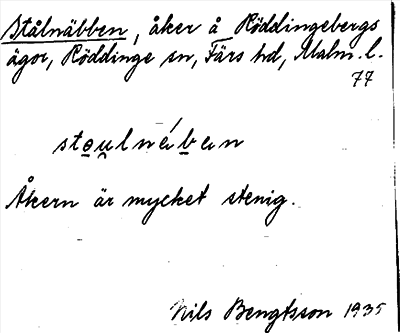 Stålnäbben, åker å Röddingebergs
ägor, Röddinge sn, Färs hd, Malm. l.
77
Åkern är mycket stenig.
Nils Bengtsson 1935